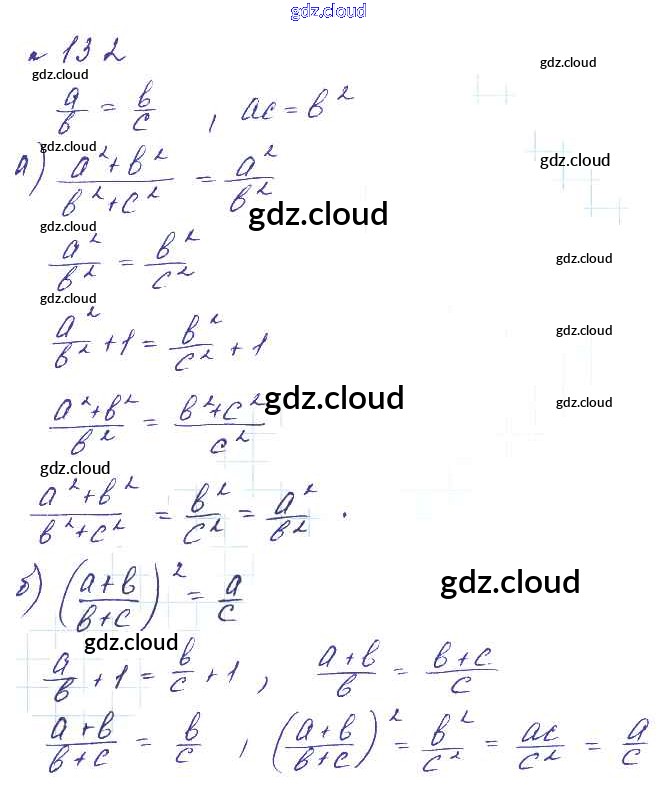 gdz.cloud
№ 132
gdz.cloud gdz.cloud
a/b = b/c , ac = b²
gdz.cloud
а) (a² + b²)/(b² + c²) = a²/b² gdz.cloud
gdz.cloud
gdz.cloud
a²/b² = b²/c² gdz.cloud
gdz.cloud
a²/b² + 1 = b²/c² + 1 gdz.cloud
(a² + b²)/b² = (b² + c²)/c² gdz.cloud gdz.cloud
gdz.cloud
(a² + b²)/(b² + c²) = b²/c² = a²/b² .
б) ((a + b)/(b + c))² = a/c gdz.cloud
gdz.cloud
a/b + 1 = b/c + 1 , (a + b)/b = (b + c)/c
(a + b)/(b + c) = b/c , ((a + b)/(b + c))² = b²/c² = ac/c² = a/c